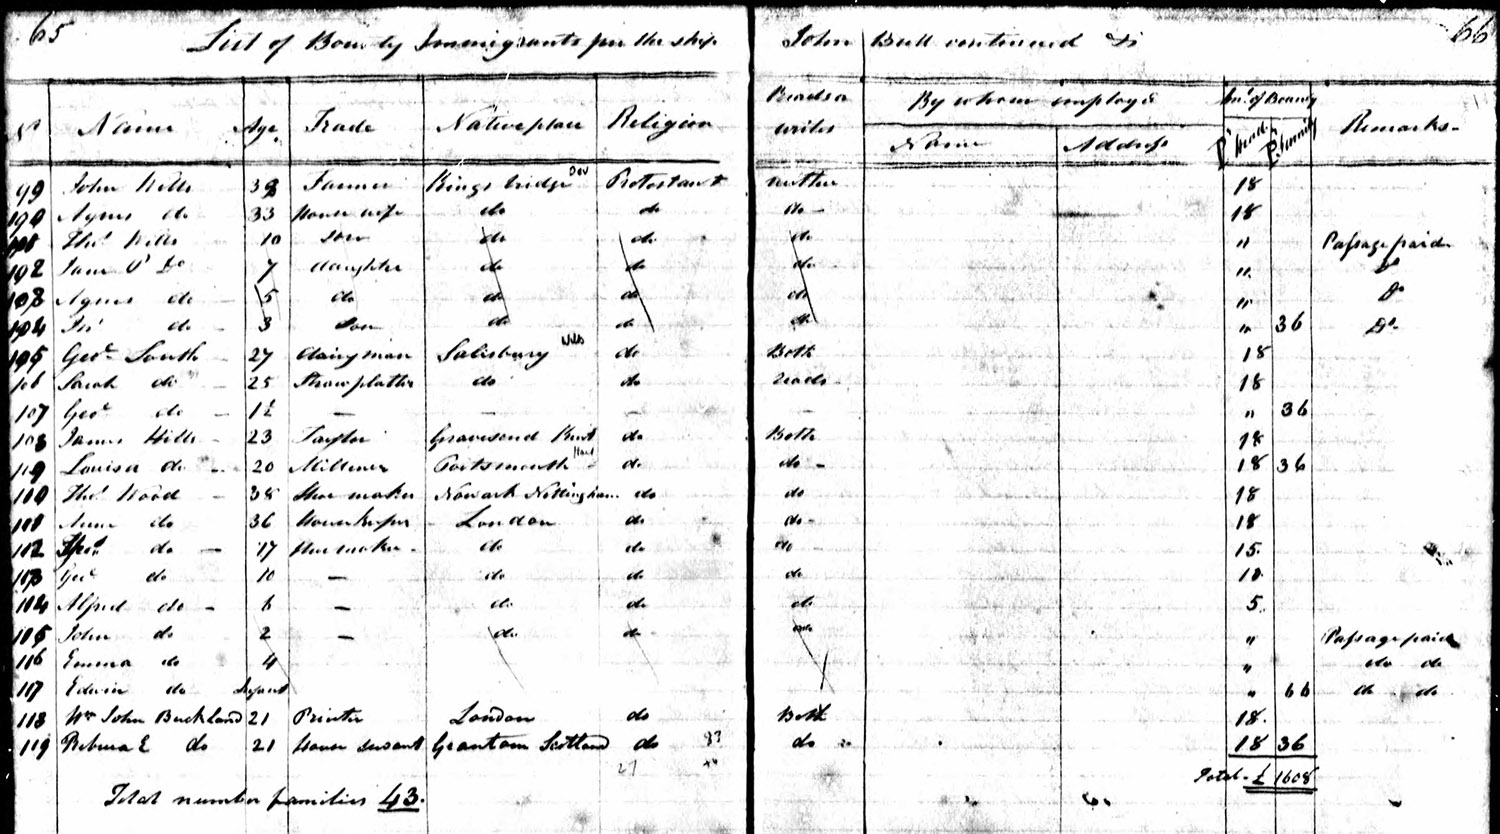 65 List of Bounty Immigrants per the ship John Bull continued & 66
No Name Age Trade Native place Religion Reads or writes By whom employed Name Address Amt of Bounty Pr head Pr family Remarks
99 John Wills 39 Farmer Kingsbridge Dev Protestant neither 18
100 Agnes do 33 House wife do do do 18
101 Thos Wills 10 Son do do do " Passage paid
102 Jane do 7 daughter do do do " Do
103 Agnes do 5 do do do do " Do
104 do 3 Son do do do " 36 Do
105 Geoe South 27 dairyman Salisbury Wilts do Both 18
106 Sarah do 25 Straw platter do do reads 18
107 Geoe do 1½ — — — — " 36
108 James Hills 23 Taylor Gravesend Kent do Both 18
109 Louisa do 20 Milliner Portsmouth do do 18 36
110 Thos Wood 38 Shoe maker Newark Nottingham do do 18
111 Anne do 36 House keeper London do do 18
112 do 17 Shoe maker do do do 15
113 Geo do 10 — do do do 10
114 Alfred do 6 — do do do 5
115 John do 2 — do do do " Passage paid
116 Emma do 4 " do do
117 Edwin do Infant " 66 do do
118 Wm John Buckland 21 Printer London do Both 18
119 Rebecca E do 21 House servant Grantown Scotland do do 18 36
Total £1608
Total number families 43.